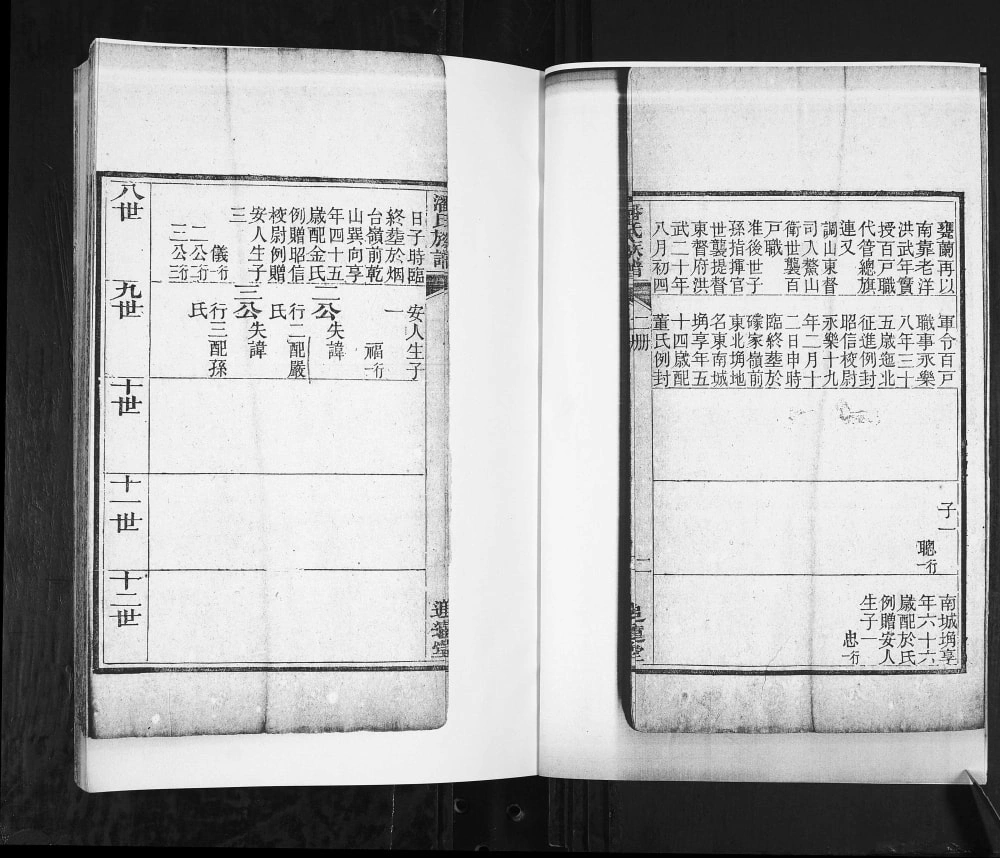 甕蘭再以
南靠老洋
洪武年實
授百戸職
代管總旗
連又
調山東督
司入鰲山
衛世襲百
戸職
准後世子
孫指揮官
世襲提督
東督府洪
武二十年
八月初四
軍令百戸
職事永樂
八年三十
五歲迤北
征進例封
昭信校尉
永樂十九
年二月十
二日申時
臨終塟於
礞家嶺前
東北塋地
名東南城
塋享年五
十四歲配
董氏例封
子一
聰一行
南城塋享
年六十六
歲配於氏
例贈安人
生子一
忠一行
潘氏族譜
二册
二
追遠堂
潘氏族譜
追遠堂
日子時臨
終塟於烟
台嶺前乾
山巽向享
年四十五
歲配金氏
例贈昭信
校尉例贈
安人生子
三
儀一行
二公二行
三公三行
安人生子
一
福一行
二公失諱
行二配嚴
氏
三公失諱
行三配孫
氏
八世
九世
十世
十一世
十二世